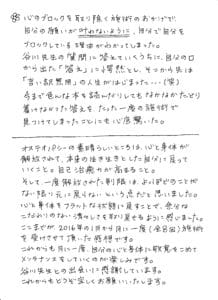 ※心のブロックを取り除く施術のおかげで、
自分の願いが叶わないように、自分で自分を
ブロックしている理由がわかってしまった。
谷川先生の質問に答えていくうちに、自分の口
から出た「答え」に愕然とし、そこから先は
「言い訳無用」の人生が始まった…(笑)
今まで色んな本を読んだりしてもなかなかたどり
着けなかった答えを、たった一度の施術で
見つけてしまったことにも心底驚いた。
オステオパシーの素晴らしいところは、心と身体が
解放されて、本来の活き生きとした自分に戻って
いくこと。自己治癒力が高まること。
そして一度解放された制限は、よっぽどのことが
ない限り元に戻らないという点だと思いました。
心と身体をフラットな状態に戻すことで、余分な
こだわりのない清々しさを取り戻せるように感じました。
ここまでが、2016年の1月から1月一度(全8回)施術
を受けてきて頂いた感想です。
これからも月に一度、自分の心と身体に敬意をこめて
メンテナンスをしていくのが楽しみです。
谷川先生との出会いに感謝しています。
これからもどうぞ宜しくお願いいたします。